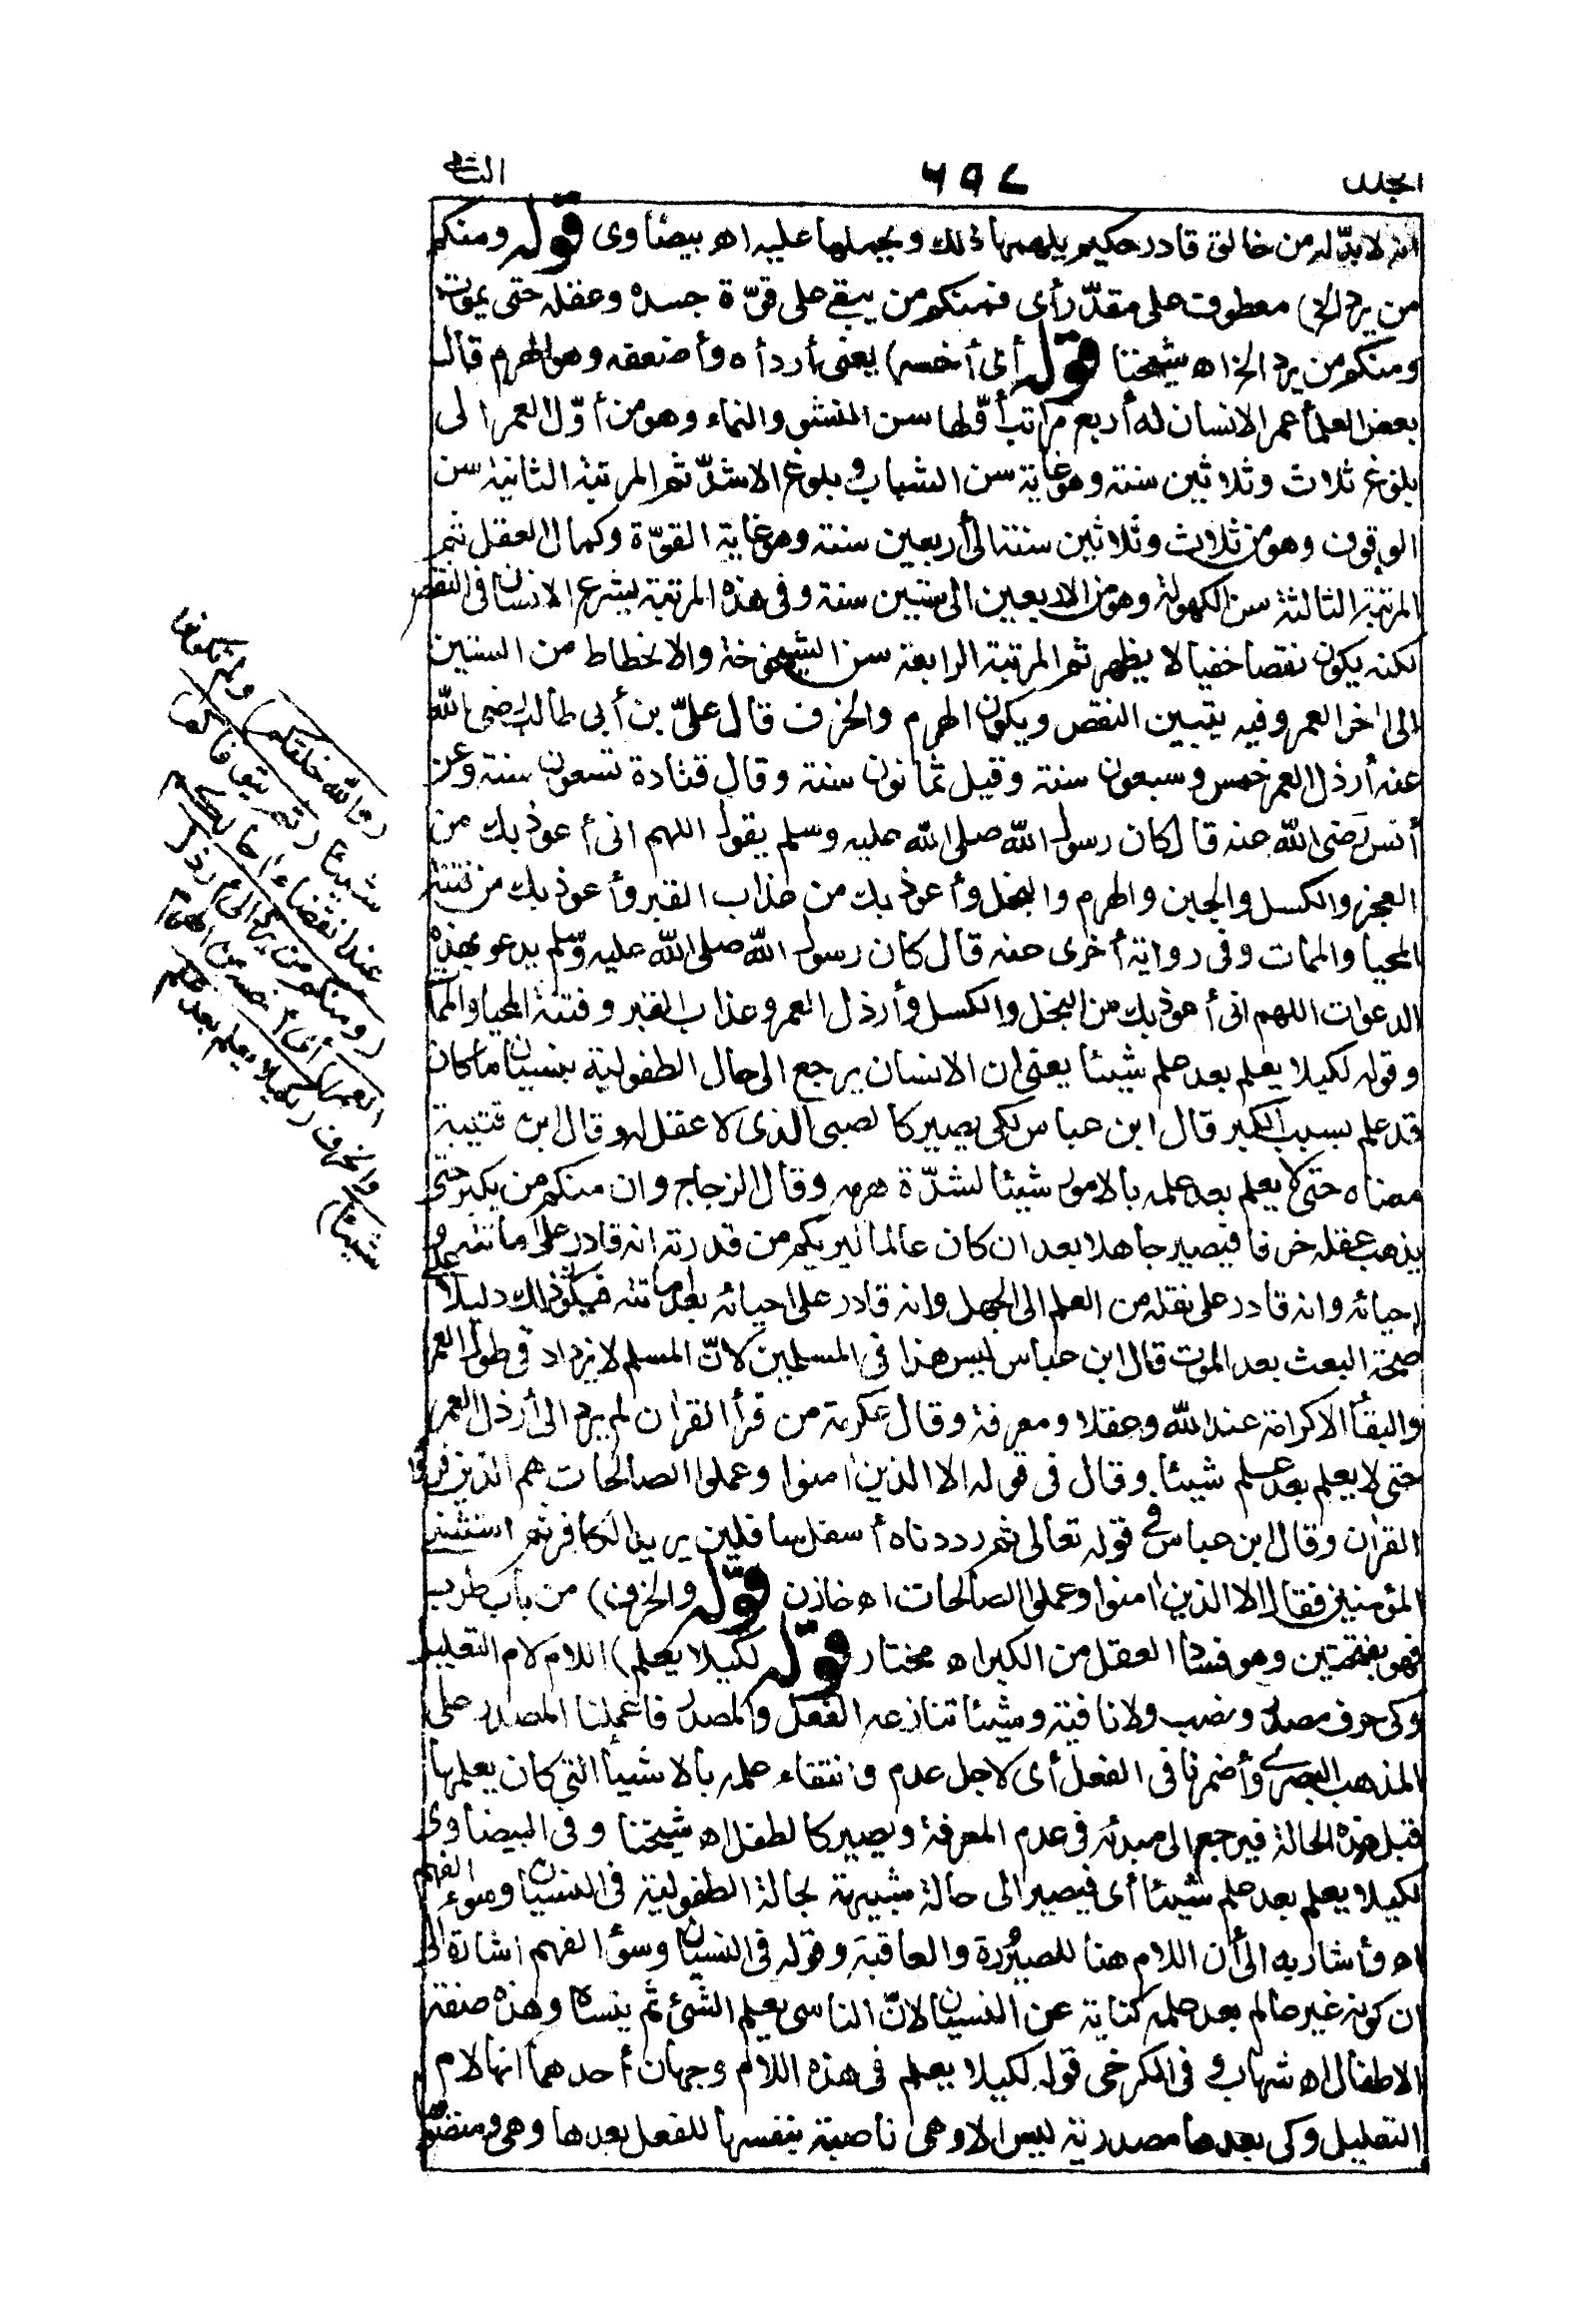 الجلد
٦٩٧
الثانى
انه لا بدّ له من خالق قادر حكيم يلهمها ذلك ويحملها عليه اه بيضاوى قوله ومنكم
من يرد الخ) معطوف على مقدّر أى فمنكم من يبقى على قوّة جسده وعقله حتى يموت
ومنكم من يرد الخ اه شيخنا قوله أى أخسه) يعنى أردأه وأضعفه وهو الهرم قال
بعض العلمأ عمر الانسان له أربع مراتب أوّلها سن النشو والنماء وهو من أوّل العمر الى
بلوغ ثلاث وثلاثين سنة وهو غاية سن الشباب وبلوغ الاشدّ ثم المرتبة الثانية سن
الوقوف وهو من ثلاث وثلاثين سنة الى أربعين سنة وهو غاية القوّة وكمال العقل ثم
المرتبة الثالثة سن الكهولة وهو من الاربعين الى ستين سنة وفى هذه المرتبة يشرع الانسان فى النقص
لكنه يكون نقصا خفيا لا يظهر ثم المرتبة الرابعة سن الشيخوخة والانحطاط من الستين
الى اخر العمر وفيه يتبين النقص ويكون الهرم والخرف قال علىّ بن أبى طالب رضى الله
عنه أرذل العمر خمس وسبعون سنة وقيل ثمانون سنة وقال قتادة تسعون سنة وعن
أنس رضى الله عنه قال كان رسول الله صلى الله عليه وسلم يقول اللهم انى أعوذ بك من
العجز والكسل والجبن والهرم والبخل وأعوذ بك من عذاب القبر وأعوذ بك من فتنة
المحيا والممات وفى رواية أخرى عنه قال كان رسول الله صلى الله عليه وسلم يدعو بهذه
الدعوات اللهم انى أعوذ بك من البخل والكسل وأرذل العمر وعذاب القبر وفتنة المحيا والممآ
وقوله لكيلا يعلم بعد علم شيئا يعنى ان الانسان يرجع الى حال الطفولية بنسيان ما كان
قد علم بسبب الكبر قال ابن عباس لكى يصير كالصبى الذى لا عقل له وقال ابن قتيبة
معناه حتى لا يعلم بعد علمه بالامور شيئا لشدّة هرمه وقال الزجاج وان منكم من يكبر حتى
يذهب عقله خرفا فيصير جاهلا بعد ان كان عالما ليريكم من قدرته انه قادر على اماتته و
احيائه وانه قادر على نقله من العلم الى الجهل وانه قادر على احيائه بعد اماتته فيكون ذلك دليلا على
صحة البعث بعد الموت قال ابن عباس ليس هذا فى المسلمين لانّ المسلم لا يزداد فى طول العمر
والبقأ الا كرامة عند الله وعقلا ومعرفة وقال عكرمة من قرأ القران لم يرد الى أرذل العمر
حتى لا يعلم بعد علم شيئا وقال فى قوله الا الذين امنوا وعملوا الصالحات هم الذين قرؤا
القران وقال ابن عباس فى قوله تعالى ثم رددناه أسفل سافلين يريد الكافر ثم استثنى
المؤمنين فقال الا الذين امنوا وعملوا الصالحات اه خازن قوله والخرف) من باب طرب
فهو بفتحتين وهو فساد العقل من الكبر اه مختار قوله لكيلا يعلم) اللام لام التعليل
وكى حرف مصدر ونصب ولا نافية وشيئا تنازعه الفعل والمصدر فاعملنا المصدر على
المذهب البصرى وأضمرنا فى الفعل أى لاجل عدم وانتفاء علمه بالاشيأ التى كان يعلمها
قبل هذه الحالة فيرجع الى مبدئه فى عدم المعرفة ويصير كالطفل اه شيخنا وفى البيضاوى
لكيلا يعلم بعد علم شيئا أى فيصير الى حالة شبيهة بحالة الطفولية فى النسيان وسوء الفهم
اه وأشار به الى أن اللام هنا للصيرورة والعاقبة وقوله فى النسيان وسؤ الفهم اشارة الى
ان كونه غير عالم بعد علمه كناية عن النسيان لانّ الناسى يعلم الشئ ثم ينساه وهذه صفة
الاطفال اه شهاب وفى الكرخى قوله لكيلا يعلم فى هذه اللام وجهان أحدهما انها لام
التعليل وكى بعدها مصدرية ليس الا وهى ناصبة بنفسها للفعل بعدها وهى ومنصوبها
(والله خلقكم) ولم تكونوا
شيئا (ثم يتوفاكم)
عند انقضاء اجالكم
(ومنكم من يرد الى أرذل
العمر) أى أخسه من الهرم
والخرف (لكيلا يعلم بعد علم
شيئا)